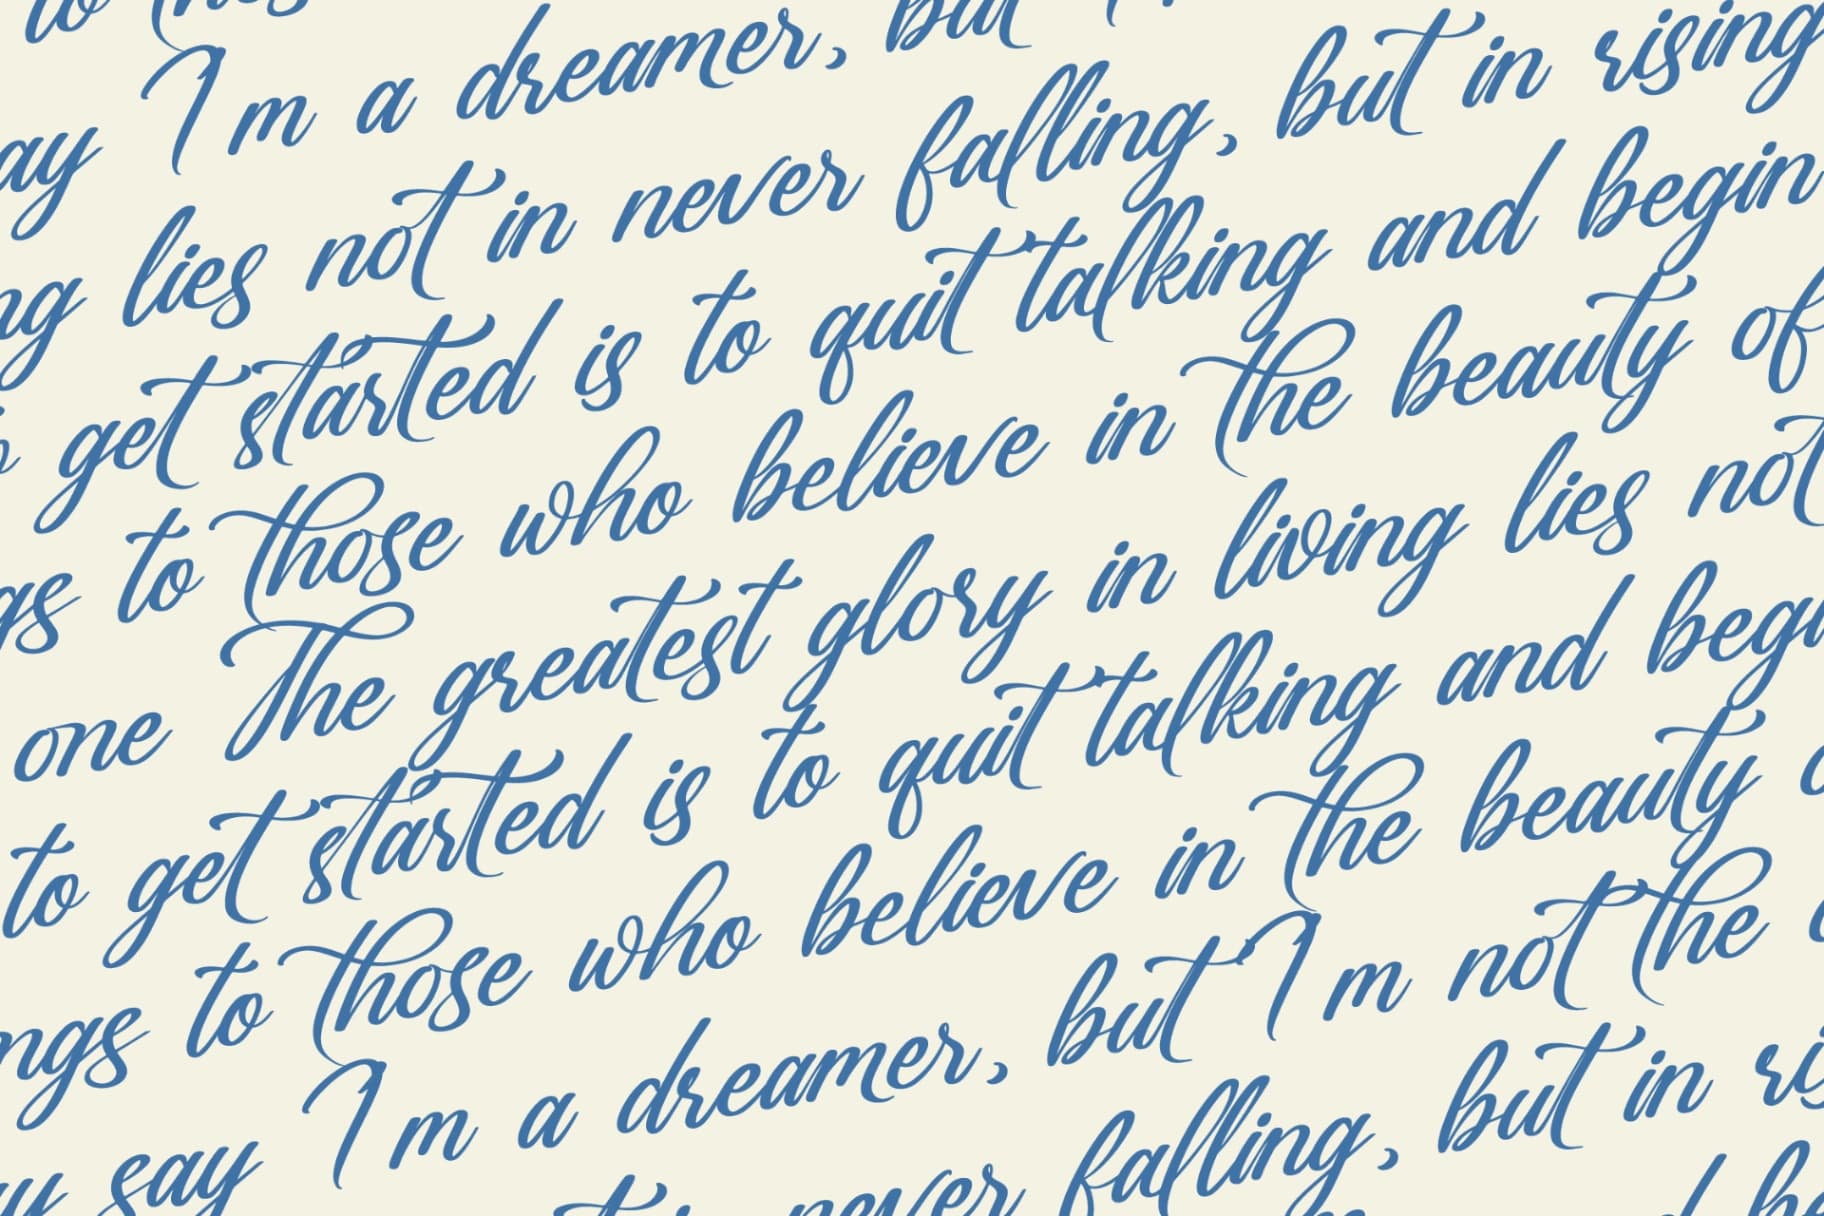 to
ay I'm a dreamer, but
ng lies not in never falling, but in rising
get started is to quit talking and begin
gs to those who believe in the beauty of
one The greatest glory in living lies not
to get started is to quit talking and begi
ngs to those who believe in the beauty
say I'm a dreamer, but I'm not the
never falling, but in ris